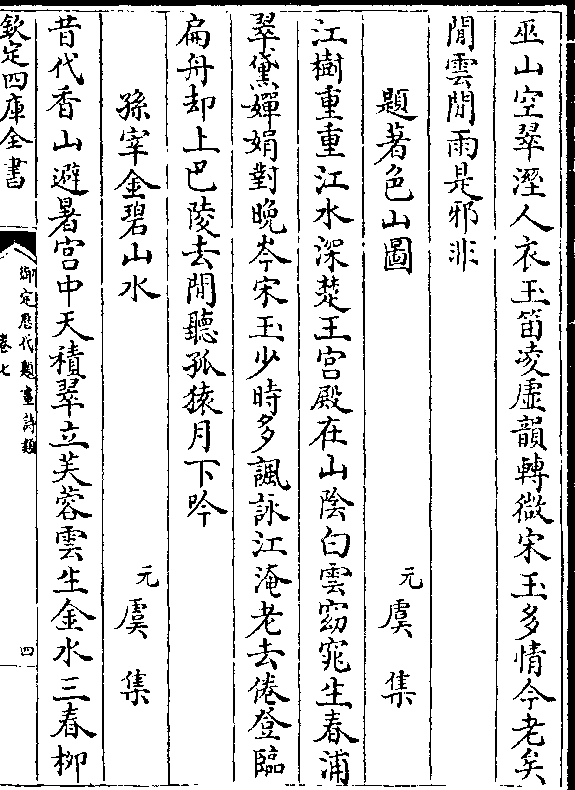 巫山空翠溼人衣玉笛凌虚韻轉微宋玉多情今老矣
閒雲閒雨是邪非
題著色山圖
元虞集
江樹重重江水深楚王宫殿在山隂白雲窈窕生春浦
翠黛嬋娟對晚岑宋玉少時多諷詠江淹老去倦登臨
扁舟却上巴陵去閒聽孤猿月下吟
孫宰金碧山水
元虞集
昔代香山避暑宫中天積翠立芙蓉雲生金水三春柳
欽定四庫全書
御定歷代題畫詩類
卷七
四